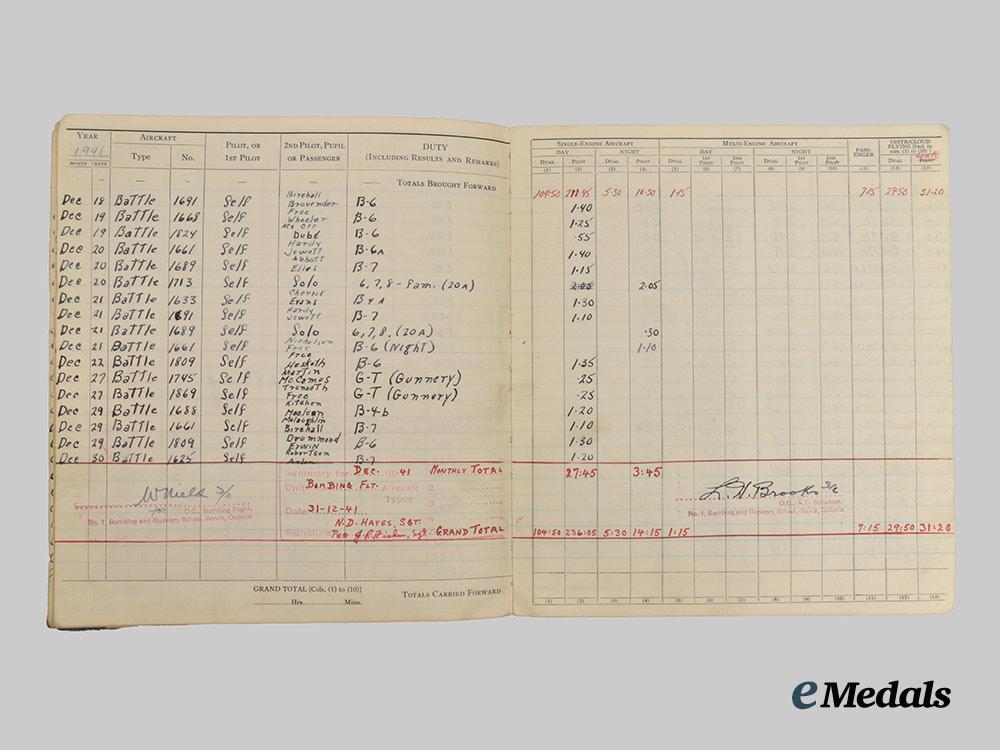 YEAR AIRCRAFT PILOT, OR 2ND PILOT, PUPIL DUTY SINGLE-ENGINE AIRCRAFT MULTI-ENGINE AIRCRAFT PASS-ENGER INSTR/CLOUD
1941 Type No. 1ST PILOT OR PASSENGER (INCLUDING RESULTS AND REMARKS) DAY NIGHT DAY NIGHT FLYING [Incl. in cols. (1) to (10)]
MONTH DATE DUAL PILOT DUAL PILOT DUAL 1ST PILOT 2ND PILOT DUAL 1ST PILOT 2ND PILOT DUAL
(1) (2) (3) (4) (5) (6) (7) (8) (9) (10) (11) (12) (13)
— — — — — TOTALS BROUGHT FORWARD 5·30 10·50 1·15 7·15 29·50 31·20
Dec 18 Battle 1691 Self Birchall Brovender B-6 1·40
Dec 19 Battle 1668 Self Free Wheeler B-6 1·25
Dec 19 Battle 1824 Self Dubé B-6 ·55
Dec 20 Battle 1661 Self Hardy Jewett B-6A 1·40
Dec 20 Battle 1689 Self Abbott B-7 1·15
Dec 20 Battle 1713 Self Solo 6,7,8- Fam. (20A) 2·05 2·05
Dec 21 Battle 1633 Self Evans B4A 1·30
Dec 21 Battle 1691 Self Hardy Jewett B-7 1·10
Dec 21 Battle 1689 Self Solo 6,7,8. (20A) ·30
Dec 21 Battle 1661 Self Nicholson Free B-6 (Night) 1·10
Dec 22 Battle 1809 Self Free Hesketh B-6 1·35
Dec 27 Battle 1745 Self Martin McCames G-T (Gunnery) ·25
Dec 27 Battle 1869 Self Free G-T (Gunnery) ·25
Dec 29 Battle 1688 Self Kitchen B-4-b 1·20
Dec 29 Battle 1661 Self McLaughlin Birchall B-7 1·10
Dec 29 Battle 1809 Self Drummond Erwin B-6 1·30
Dec 30 Battle 1625 Self Robertson B-7 1·20
Summary for DEC. 1941 MONTHLY TOTAL 27:45 3:45
Unit BOMBING FLT. Aircraft 2
Types 3
for O.C., Bombing Flight,
No. 1, Bombing and Gunnery School, Jarvis, Ontario
Date 31-12-41
N.D. HAYES, SGT. 4
Signature Per GRAND TOTAL 104:50 236:05 5:30 14:15 1:15 7:15 29:50 31:20
L. H. Brooks
No. 1, Bombing and Gunnery School, Jarvis, Ontario
GRAND TOTAL [Cols. (1) to (10)] TOTALS CARRIED FORWARD
Hrs. Mins.
(1) (2) (3) (4) (5) (6) (7) (8) (9) (10) (11) (12) (13)
eMedals